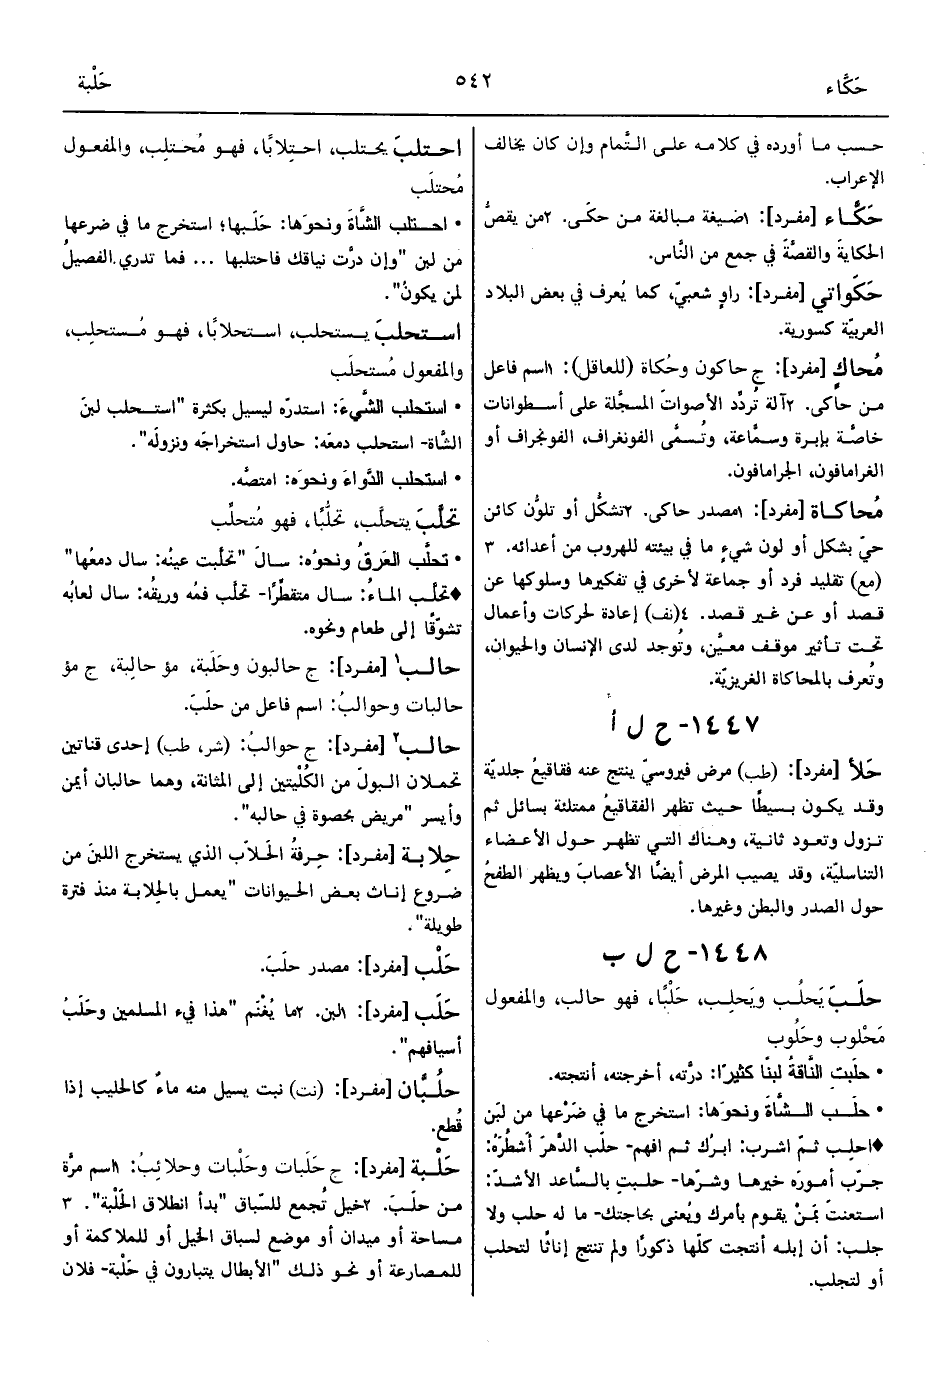 حَكَّاء
٥٤٢
حَلْبة
حسب ما أورده في كلامه على التَّمام وإن كان يخالف
الإعراب.
حَكَّاء [مفرد]: ١صيغة مبالغة من حكَى. ٢من يقصُّ
الحكاية والقصَّة في جمع من النَّاس.
حَكَواتي [مفرد]: راوٍ شعبيّ، كما يُعرف في بعض البلاد
العربيَّة كسورية.
مُحاكٍ [مفرد]: ج حاكون وحُكاة (للعاقل): ١اسم فاعل
من حاكى. ٢آلة تُردِّد الأصوات المسجَّلة على أسطوانات
خاصَّة بإبرة وسمَّاعة، وتُسمَّى الفونغراف، الفونجراف أو
الغرامافون، الجرامافون.
مُحاكاة [مفرد]: ١مصدر حاكى. ٢تشكُّل أو تلوُّن كائن
حيّ بشكل أو لون شيءٍ ما في بيئته للهروب من أعدائه. ٣
(مع) تقليد فرد أو جماعة لأخرى في تفكيرها وسلوكها عن
قصد أو عن غير قصد. ٤(نف) إعادة لحركات وأعمال
تحت تأثير موقف معيَّن، وتُوجد لدى الإنسان والحيوان،
وتُعرف بالمحاكاة الغريزيَّة.
١٤٤٧- ح ل أ
حَلأ [مفرد]: (طب) مرض فيروسيّ ينتج عنه فقاقيعُ جلديّة
وقد يكون بسيطًا حيث تظهر الفقاقيعُ ممتلئة بسائل ثم
تزول وتعود ثانية، وهناك التي تظهر حول الأعضاء
التناسليَّة، وقد يصيب المرض أيضًا الأعصابَ ويظهر الطفحُ
حول الصدر والبطن وغيرها.
١٤٤٨- ح ل ب
حلَبَ يَحلُب ويَحلِب، حَلْبًا، فهو حالب، والمفعول
مَحْلوب وحَلُوب
• حلَبت النَّاقةُ لبنًا كثيرًا: درَّته، أخرجته، أنتجته.
• حلَب الشَّاةَ ونحوَها: استخرج ما في ضَرْعها من لبَن
♦احلِب ثمّ اشرب: ابرُك ثم افهم- حلَب الدَّهرَ أشطُرَهُ:
جرّب أمورَه خيرها وشرّها- حلبتِ بالسَّاعد الأشدّ:
استعنتَ بمَنْ يقوم بأمرك ويُعنى بحاجتك- ما له حلب ولا
جلب: أن إبله أنتجت كلّها ذكورًا ولم تنتج إناثًا لتحلب
أو لتجلب.
احتلبَ يحتلب، احتِلابًا، فهو مُحتلِب، والمفعول
مُحتلَب
• احتلب الشَّاةَ ونحوَها: حَلَبها؛ استخرج ما في ضرعها
من لبن "وإن درّت نياقك فاحتلبها ... فما تدري الفصيلُ
لمن يكونُ".
استحلبَ يستحلب، استحلابًا، فهو مُستحلِب،
والمفعول مُستحلَب
• استحلب الشَّيءَ: استدرّه ليسيل بكثرة "استحلب لبنَ
الشَّاة- استحلب دمعَه: حاول استخراجَه ونزولَه".
• استحلب الدَّواءَ ونحوَه: امتصَّه.
تحلَّبَ يتحلَّب، تحلُّبًا، فهو مُتحلِّب
• تحلَّب العَرقُ ونحوُه: سالَ "تحلّبت عينُه: سال دمعُها"
♦تحلَّب الماءُ: سال متقطِّرًا- تحلّب فمُه وريقُه: سال لعابُه
تشوّقًا إلى طعام ونحوه.
حالب١ [مفرد]: ج حالبون وحَلَبة، مؤ حالبة، ج مؤ
حالبات وحوالبُ: اسم فاعل من حلَبَ.
حالب٢ [مفرد]: ج حوالبُ: (شر، طب) إحدى قناتين
تحملان البولَ من الكُلْيتين إلى المثانة، وهما حالبان أيمن
وأيسر "مريض بحصوة في حالبه".
حِلابة [مفرد]: حِرفةُ الحَلاّب الذي يستخرج اللبنَ من
ضروع إناث بعض الحيوانات "يعمل بالحِلابة منذ فترة
طويلة".
حَلْب [مفرد]: مصدر حلَبَ.
حَلَب [مفرد]: ١لبن. ٢ما يُغْنَم "هذا فيء المسلمين وحَلَبُ
أسيافهم".
حلُبَّان [مفرد]: (نت) نبت يسيل منه ماءٌ كالحليب إذا
قُطع.
حَلْبة [مفرد]: ج حَلَبات وحَلْبات وحلائبُ: ١اسم مرَّة
من حلَبَ. ٢خيل تُجمع للسِّباق "بدأ انطلاق الحَلْبة". ٣
مساحة أو ميدان أو موضع لسباق الخيل أو للملاكمة أو
للمصارعة أو نحو ذلك "الأبطال يتبارون في حَلْبة- فلان